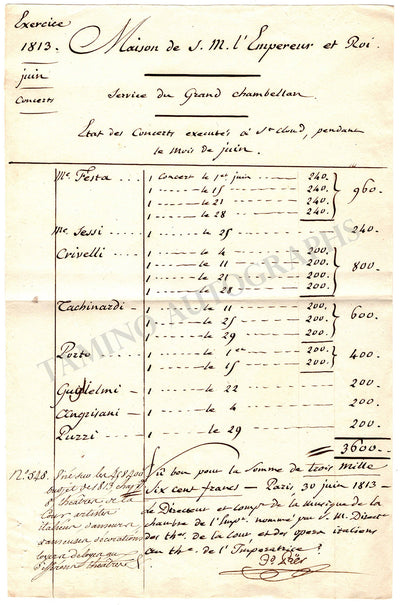 Exercice
1813.
juin
Concerts
Maison de S. M. l'Empereur et Roi.
Service du Grand chambellan.
Etat des Concerts executés à St Cloud, pendant
le mois de juin.
Me. Festa .... 1 Concert le 1er juin ... 240.
1 ... le 15 ... 240.
1 ... le 21 ... 240.
1 ... le 28 ... 240. } 960.
Me. Sessi ... 1 ... le 25 ... 240.
Crivelli ... 1 ... le 4 ... 200.
1 ... le 11 ... 200.
1 ... le 21 ... 200.
1 ... le 28 ... 200. } 800.
Tachinardi ... 1 ... le 11 ... 200.
1 ... le 25 ... 200.
1 ... le 29 ... 200. } 600.
Porto ... 1 ... le 1er ... 200.
1 ... le 15 ... 200. } 400.
Guglielmi ... 1 ... le 22 ... 200.
Angrisani ... 1 ... le 4 ... 200.
Puzzi ... 1 ... le 29 ... 200.
3600.
Vu bon pour la somme de trois mille
Six cent francs — Paris 30 juin 1813 —
Le Directeur et de la musique de la
chambre de l'Emp. nommé par S. M. Direct.
des th. de la Cour et des operas italiens
au th. de l'Imperatrice.
N.º 548.
sur les
de 1813 chap.
8 theatre de la
Cour artistes
italiens danseurs
danseuses décorations
loyers
TAMINO AUTOGRAPHS